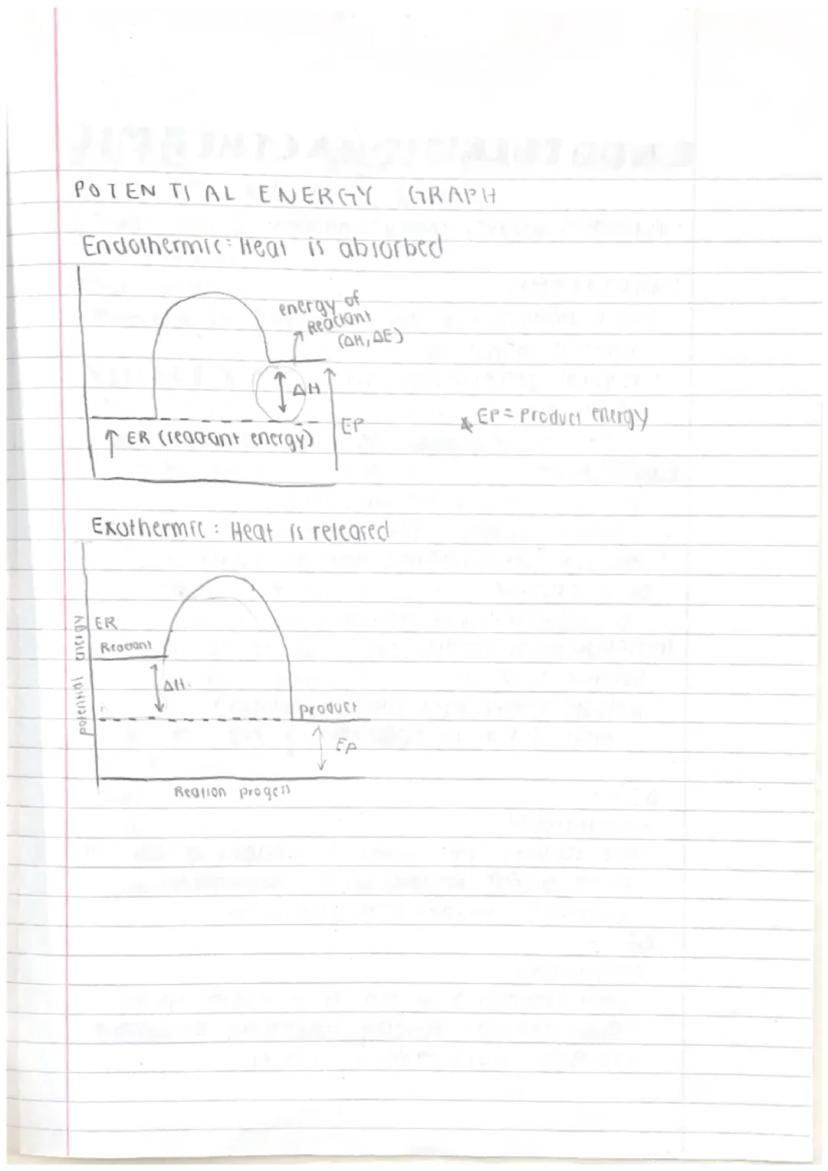 POTENTIAL ENERGY GRAPH
Endothermic: Heat is absorbed
energy of
Reactant
(ΔH, ΔE)
ΔH
EP
↑ ER (reactant energy)
* EP = Product energy
Exothermic: Heat is released
potential energy
ER
Reactant
ΔH
product
EP
Reation progess